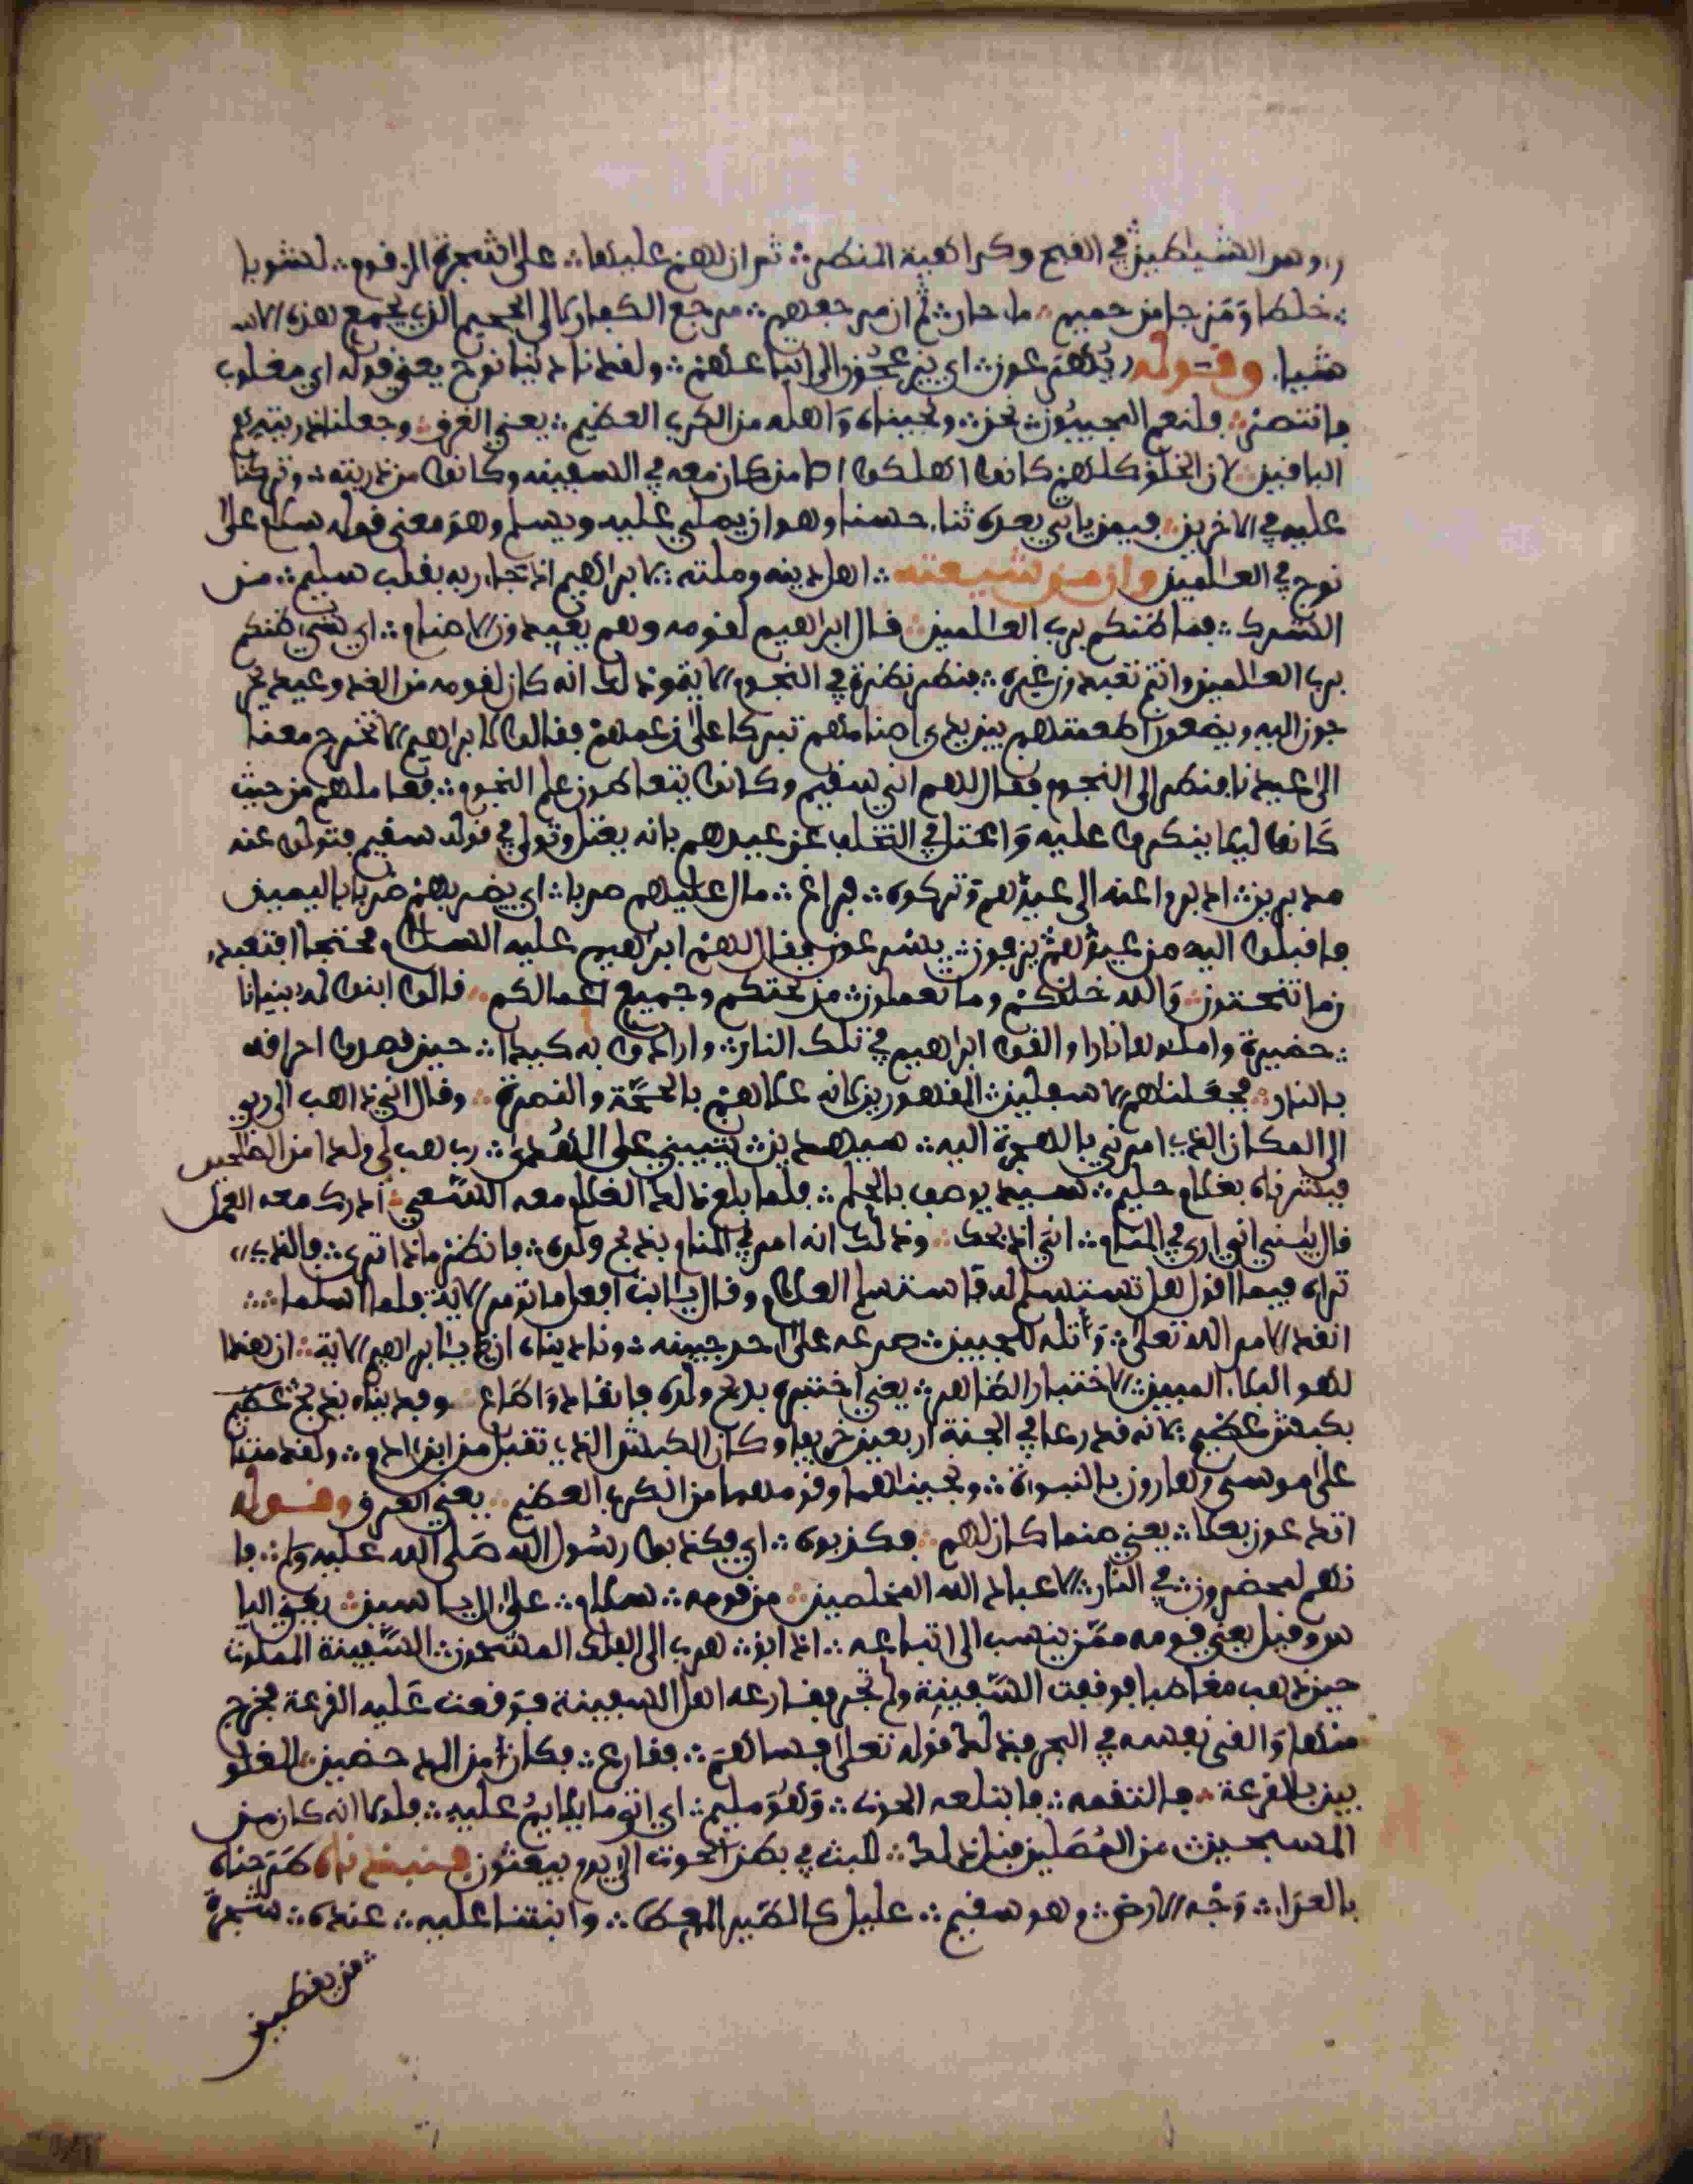 روس الشيطين في القبح وكراهية المنظر ثم ان لهم عليها على الشجرة الزقوم لشوبا
خلطا ومزجا من حميم ماء حار ثم ان مرجعهم مرجع الكفار لالى الجحيم الذي يجمع هذه الاشيا
وقوله يهرعون اي يزعجون الى اتباعهم ولقد نادينا نوح يعني قوله اي مغلوب
فانتصر فلنعم المجيبون نحن ونجيناه واهله من الكرب العظيم يعني الغرق وجعلنا ذريته هم
الباقين لان الخلق كلهم كانوا اهلكوا الا من كان معه في السفينه وكانوا من ذريته وتركنا
عليه في الاخرين فيمن ياتي بعده ثناء حسنا وهو ان يصلي عليه ويسلم وهو معنى قوله سلم على
نوح في العلمين وان من شيعته اهل دينه وملته لابرهيم اذ جاء ربه بقلب سليم من
الشرك فما ظنكم برب العلمين قال ابرهيم لقومه وهم يعبدون الاصنام اي شي ظنكم
برب العلمين وانتم تعبدون غيره فنظر نظرة في النجوم الاية وذلك انه كان لقومه من الغد وعيد يخر
جون اليه ويضعون اطعمتهم بين يدي اصنامهم تبركا على زعمهم فقالوا لابرهيم الا تخرج معنا
الى عيدنا فنظر الى النجوم فقال لهم اني سقيم وكانوا يتعاطون علم النجوم فعاملهم من حيث
كانوا ليلا ينكروا عليه واعتل في التخلف عن عيدهم بانه يعتل وتول في قوله سقيم فتولوا عنه
مدبرين ادبروا عنه الى عيدهم وتركوه فراغ مال عليهم ضربا اي يضربهم ضربا باليمين
فاقبلوا اليه من عيدهم يزفون يسرعون فقال لهم ابرهيم عليه السلام محتجا اتعبدو
ن ما تنحتون والله خلقكم وما تعملون من نحتكم وجميع اعمالكم قالوا ابنوا له بنيانا
حضيرة واملوها نارا والقوا ابرهيم في تلك النار وارادوا به كيدا حين قصدوا احراقه
بالنار فجعلناهم الاسفلين المقهورين لانه علاهم بالحجة والنصرة وقال اني ذاهب الى ربي
الى المكان الذي امرني بالهجرة اليه سيهدين يثبتني على الهدى رب هب لي ولدا من الصلحين
فبشرناه بغلام حليم سيد يوصف بالحلم فلما بلغ ذلك الغلام معه السعي ادرك معه العمل
قال يبني اني ارى في المنام اني اذبحك وذلك انه امر في المنام بذبح ولده فانظر ماذا ترى فالذي
تراه فيما اقول هل تستسلم له فاستسلم الغلام وقال يابت افعل ما تومر الاية فلما اسلما
انقادا لامر الله تعلى وتله للجبين صرعه على احد جبينه وناديناه ان يابرهيم الاية ان هذا
لهو البلاء المبين الاختبار الظاهر يعني اختبره بذبح ولده فانقاد واطاع وفديناه بذبح عظيم
بكبش عظيم لانه قد رعا في الجنة اربعين خريفا وكان الكبش الذي تقبل من ابن ادم ولقد مننا
على موسى وهارون بالنبوة ونجيناهما وقومهما من الكرب العظيم يعني الغرق وقوله
اتدعون بعلا يعني صنما كان لهم فكذبوه اي فكذبوا رسول الله صلى الله عليه وسلم فا
نهم لمحضرون في النار الا عباد الله المخلصين من قومه سلام على ال ياسين يعني اليا
س وقيل يعني قومه ممن ينسب الى اتباعه اذ ابق هرب الى الفلك المشحون السفينة المملوة
حين ذهب مغاضبا فوقفت السفينة ولم تجر فقارعه اهل السفينة فوقعت عليه القرعة فخرج
منها والقى نفسه في البحر فذلك قوله تعلى فساهم فقارع فكان من المدحضين المغلو
بين بالقرعة فالتقمه فابتلعه الحوت وهو مليم اي اتى ما يلام عليه فلولا انه كان من
المسبحين من المصلين قبل ذلك للبث في بطن الحوت الى يوم يبعثون فنبذناه طرحناه
بالعراء وجه الارض وهو سقيم عليل كالطير المعط وانبتنا عليه عنده شجرة
من يقطين